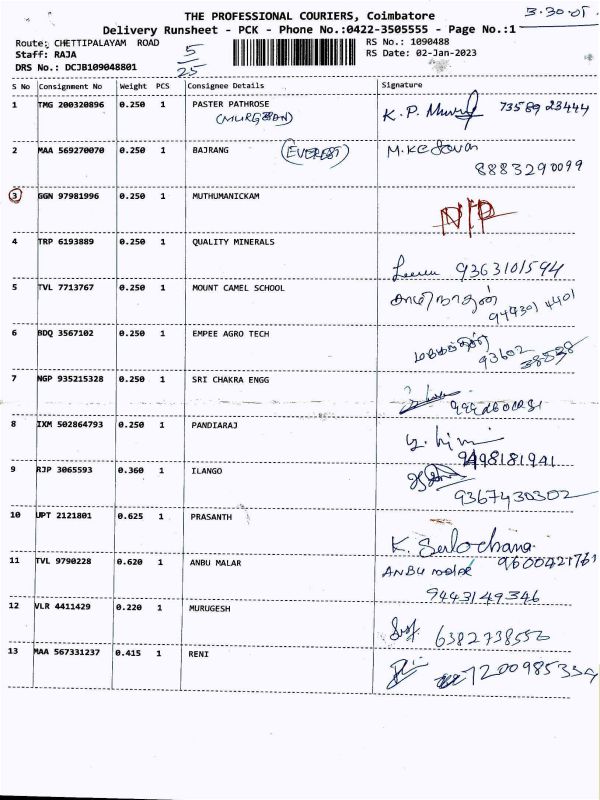 3-30-01
THE PROFESSIONAL COURIERS, Coimbatore
Delivery Runsheet - PCK - Phone No.:0422-3505555 - Page No.:1
Route: CHETTIPALAYAM ROAD
RS No.: 1090488
Staff: RAJA
5
25
RS Date: 02-Jan-2023
DRS No.: DCJB109048801
S No Consignment No Weight PCS Consignee Details Signature
1 TMG 200320896 0.250 1 PASTER PATHROSE K. P. 7358923444
2 MAA 569270070 0.250 1 BAJRANG (EVEREST) M.Kesavan
8883290099
3 GGN 97981996 0.250 1 MUTHUMANICKAM
N/P
4 TRP 6193889 0.250 1 QUALITY MINERALS
9363101594
5 TVL 7713767 0.250 1 MOUNT CAMEL SCHOOL
6 BDQ 3567102 0.250 1 EMPEE AGRO TECH
93602
38838
7 NGP 935215328 0.250 1 SRI CHAKRA ENGG
8 IXM 502864793 0.250 1 PANDIARAJ
9498181941
9 RJP 3065593 0.360 1 ILANGO
9367430302
10 UPT 2121801 0.625 1 PRASANTH
K. Sulochana
9600421761
11 TVL 9790228 0.620 1 ANBU MALAR ANBU மலர்
9443149346
12 VLR 4411429 0.220 1 MURUGESH
6382738556
13 MAA 567331237 0.415 1 RENI
7200985334